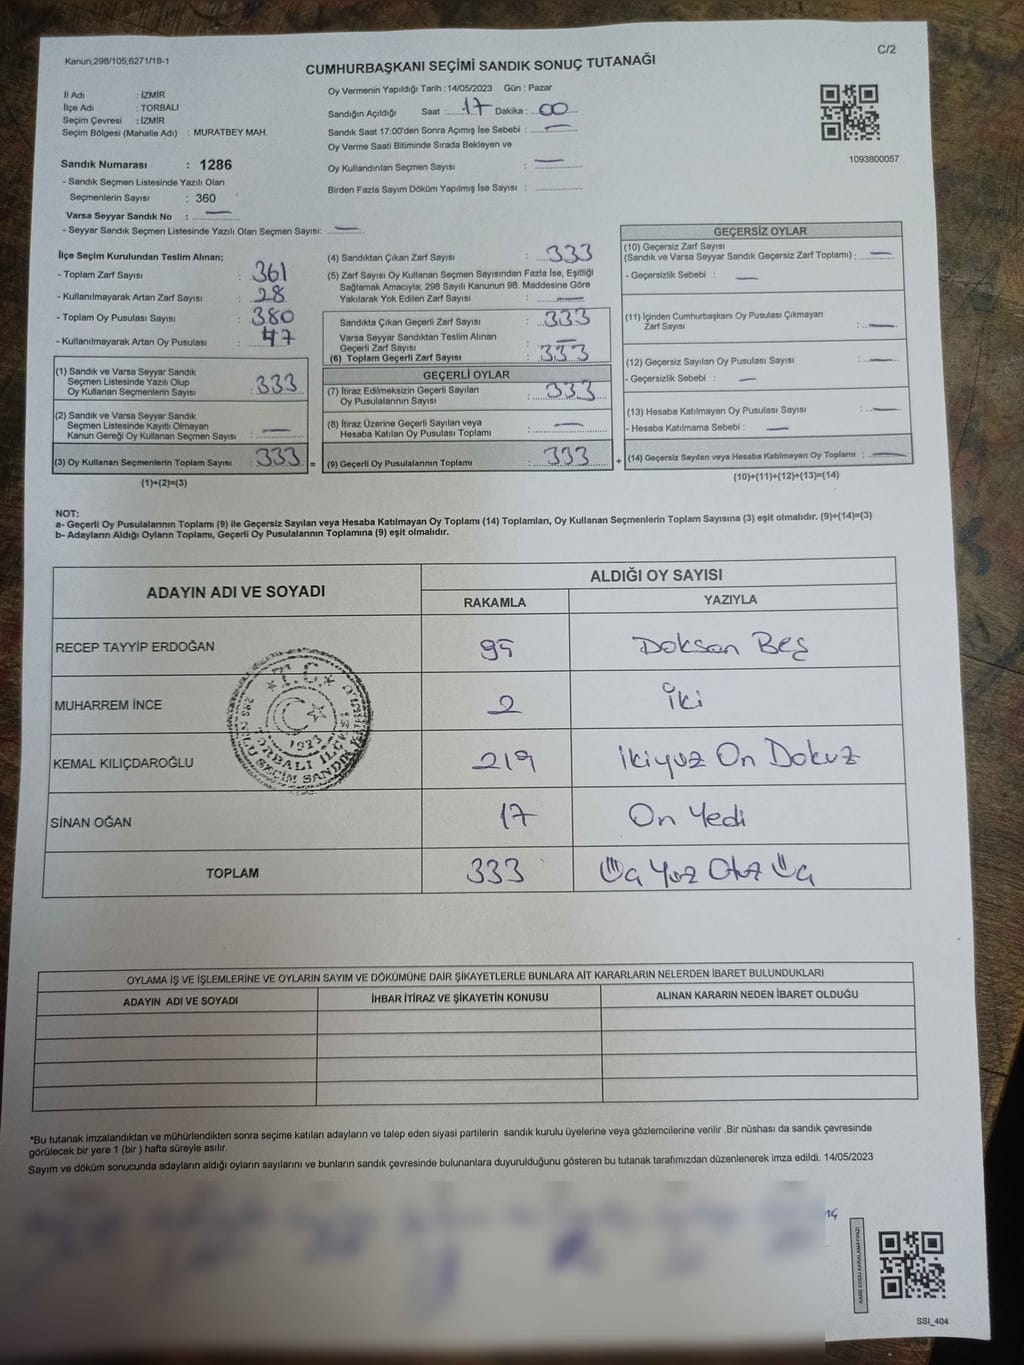 Kanun;298/105;6271/18-1
C/2
CUMHURBAŞKANI SEÇİMİ SANDIK SONUÇ TUTANAĞI
İl Adı : İZMİR
İlçe Adı : TORBALI
Seçim Çevresi : İZMİR
Seçim Bölgesi (Mahalle Adı) : MURATBEY MAH.
Sandık Numarası : 1286
- Sandık Seçmen Listesinde Yazılı Olan
Seçmenlerin Sayısı : 360
Varsa Seyyar Sandık No : —
- Seyyar Sandık Seçmen Listesinde Yazılı Olan Seçmen Sayısı: —
Oy Vermenin Yapıldığı Tarih : 14/05/2023 Gün : Pazar
Sandığın Açıldığı Saat : 17 Dakika : 00
Sandık Saat 17:00'den Sonra Açımış İse Sebebi : —
Oy Verme Saati Bitiminde Sırada Bekleyen ve
Oy Kullandırılan Seçmen Sayısı : —
Birden Fazla Sayım Döküm Yapılmış İse Sayısı :
1093800057
İlçe Seçim Kurulundan Teslim Alınan;
- Toplam Zarf Sayısı : 361
- Kullanılmayarak Artan Zarf Sayısı : 28
- Toplam Oy Pusulası Sayısı : 380
- Kullanılmayarak Artan Oy Pusulası : 47
(1) Sandık ve Varsa Seyyar Sandık
Seçmen Listesinde Yazılı Olup
Oy Kullanan Seçmenlerin Sayısı : 333
(2) Sandık ve Varsa Seyyar Sandık
Seçmen Listesinde Kayıtlı Olmayan
Kanun Gereği Oy Kullanan Seçmen Sayısı : —
(3) Oy Kullanan Seçmenlerin Toplam Sayısı : 333
(1)+(2)=(3)
(4) Sandıktan Çıkan Zarf Sayısı : 333
(5) Zarf Sayısı Oy Kullanan Seçmen Sayısından Fazla İse, Eşitliği
Sağlamak Amacıyla; 298 Sayılı Kanunun 98. Maddesine Göre
Yakılarak Yok Edilen Zarf Sayısı : —
Sandıkta Çıkan Geçerli Zarf Sayısı : 333
Varsa Seyyar Sandıktan Teslim Alınan
Geçerli Zarf Sayısı : —
(6) Toplam Geçerli Zarf Sayısı : 333
GEÇERLİ OYLAR
(7) İtiraz Edilmeksizin Geçerli Sayılan
Oy Pusulalarının Sayısı : 333
(8) İtiraz Üzerine Geçerli Sayılan veya
Hesaba Katılan Oy Pusulası Toplamı : —
= (9) Geçerli Oy Pusulalarının Toplamı : 333
GEÇERSİZ OYLAR
(10) Geçersiz Zarf Sayısı
(Sandık ve Varsa Seyyar Sandık Geçersiz Zarf Toplamı) : —
- Geçersizlik Sebebi : —
(11) İçinden Cumhurbaşkanı Oy Pusulası Çıkmayan
Zarf Sayısı : —
(12) Geçersiz Sayılan Oy Pusulası Sayısı : —
- Geçersizlik Sebebi : —
(13) Hesaba Katılmayan Oy Pusulası Sayısı : —
- Hesaba Katılmama Sebebi : —
+ (14) Geçersiz Sayılan veya Hesaba Katılmayan Oy Toplamı : —
(10)+(11)+(12)+(13)=(14)
NOT:
a- Geçerli Oy Pusulalarının Toplamı (9) ile Geçersiz Sayılan veya Hesaba Katılmayan Oy Toplamı (14) Toplamları, Oy Kullanan Seçmenlerin Toplam Sayısına (3) eşit olmalıdır. (9)+(14)=(3)
b- Adayların Aldığı Oyların Toplamı, Geçerli Oy Pusulalarının Toplamına (9) eşit olmalıdır.
ADAYIN ADI VE SOYADI
ALDIĞI OY SAYISI
RAKAMLA YAZIYLA
RECEP TAYYİP ERDOĞAN 95 Doksan Beş
MUHARREM İNCE 2 İki
KEMAL KILIÇDAROĞLU 219 İkiyüz On Dokuz
SİNAN OĞAN 17 On Yedi
TOPLAM 333 Üç Yüz Otuz Üç
T.C.
1923
TORBALI İLÇE
SEÇİM SANDIK
OYLAMA İŞ VE İŞLEMLERİNE VE OYLARIN SAYIM VE DÖKÜMÜNE DAİR ŞİKAYETLERLE BUNLARA AİT KARARLARIN NELERDEN İBARET BULUNDUKLARI
ADAYIN ADI VE SOYADI İHBAR İTİRAZ VE ŞİKAYETİN KONUSU ALINAN KARARIN NEDEN İBARET OLDUĞU
*Bu tutanak imzalandıktan ve mühürlendikten sonra seçime katılan adayların ve talep eden siyasi partilerin sandık kurulu üyelerine veya gözlemcilerine verilir .Bir nüshası da sandık çevresinde
görülecek bir yere 1 (bir ) hafta süreyle asılır.
Sayım ve döküm sonucunda adayların aldığı oyların sayılarını ve bunların sandık çevresinde bulunanlara duyurulduğunu gösteren bu tutanak tarafımızdan düzenlenerek imza edildi. 14/05/2023
KARE KODU KARALAMAYINIZ!
SSI_404